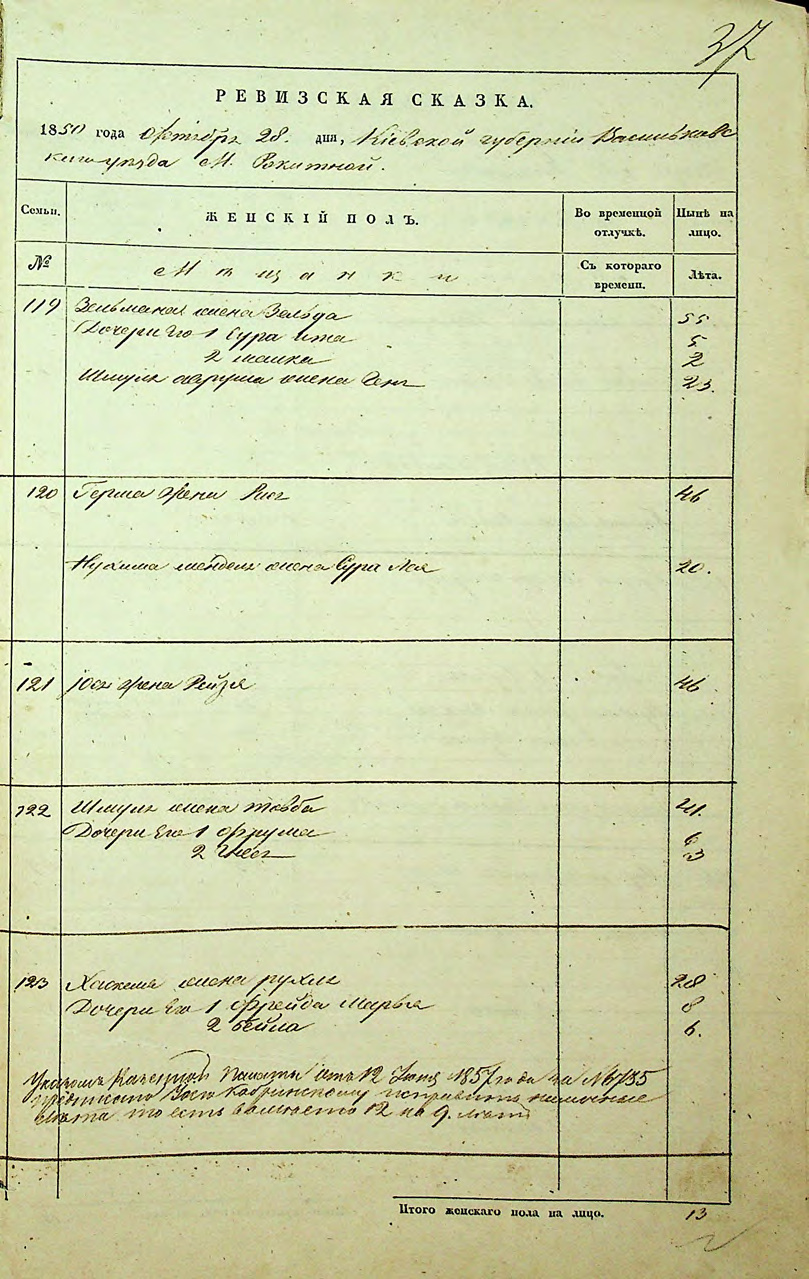 37
РЕВИЗСКАЯ СКАЗКА.
1850 года Октября 28. дня, Кіевской губерніи Васильковс
каго уезда М. Рокитной.
Семьи. ЖЕНСКІЙ ПОЛЪ. Во временной отлучкѣ. Нынѣ на лицо.
№ Мѣщанки Съ котораго времени. Лѣта.
119 Зельмана жена Зельда 55.
Дочери Его 1 Сура Ита 5
2 Малка 2
Шмуля жена 23.
120 Герша жена 46
Нухима Менделя жена Сура Лея 20.
121 жена Рейзя 46
122 Шмуля жена Товба 24.
Дочери Его 1 Фрума 6
2 3
123 Хаскеля жена Рухля 28
Дочери Его 1 Фрейда Марья 8
2 Бейла 6.
Указомъ Казенной Палаты отъ 12 1857 года за №
предписано исправить
лѣта то есть вместо 12 на 9. лѣтъ
Итого женскаго пола на лицо. 13